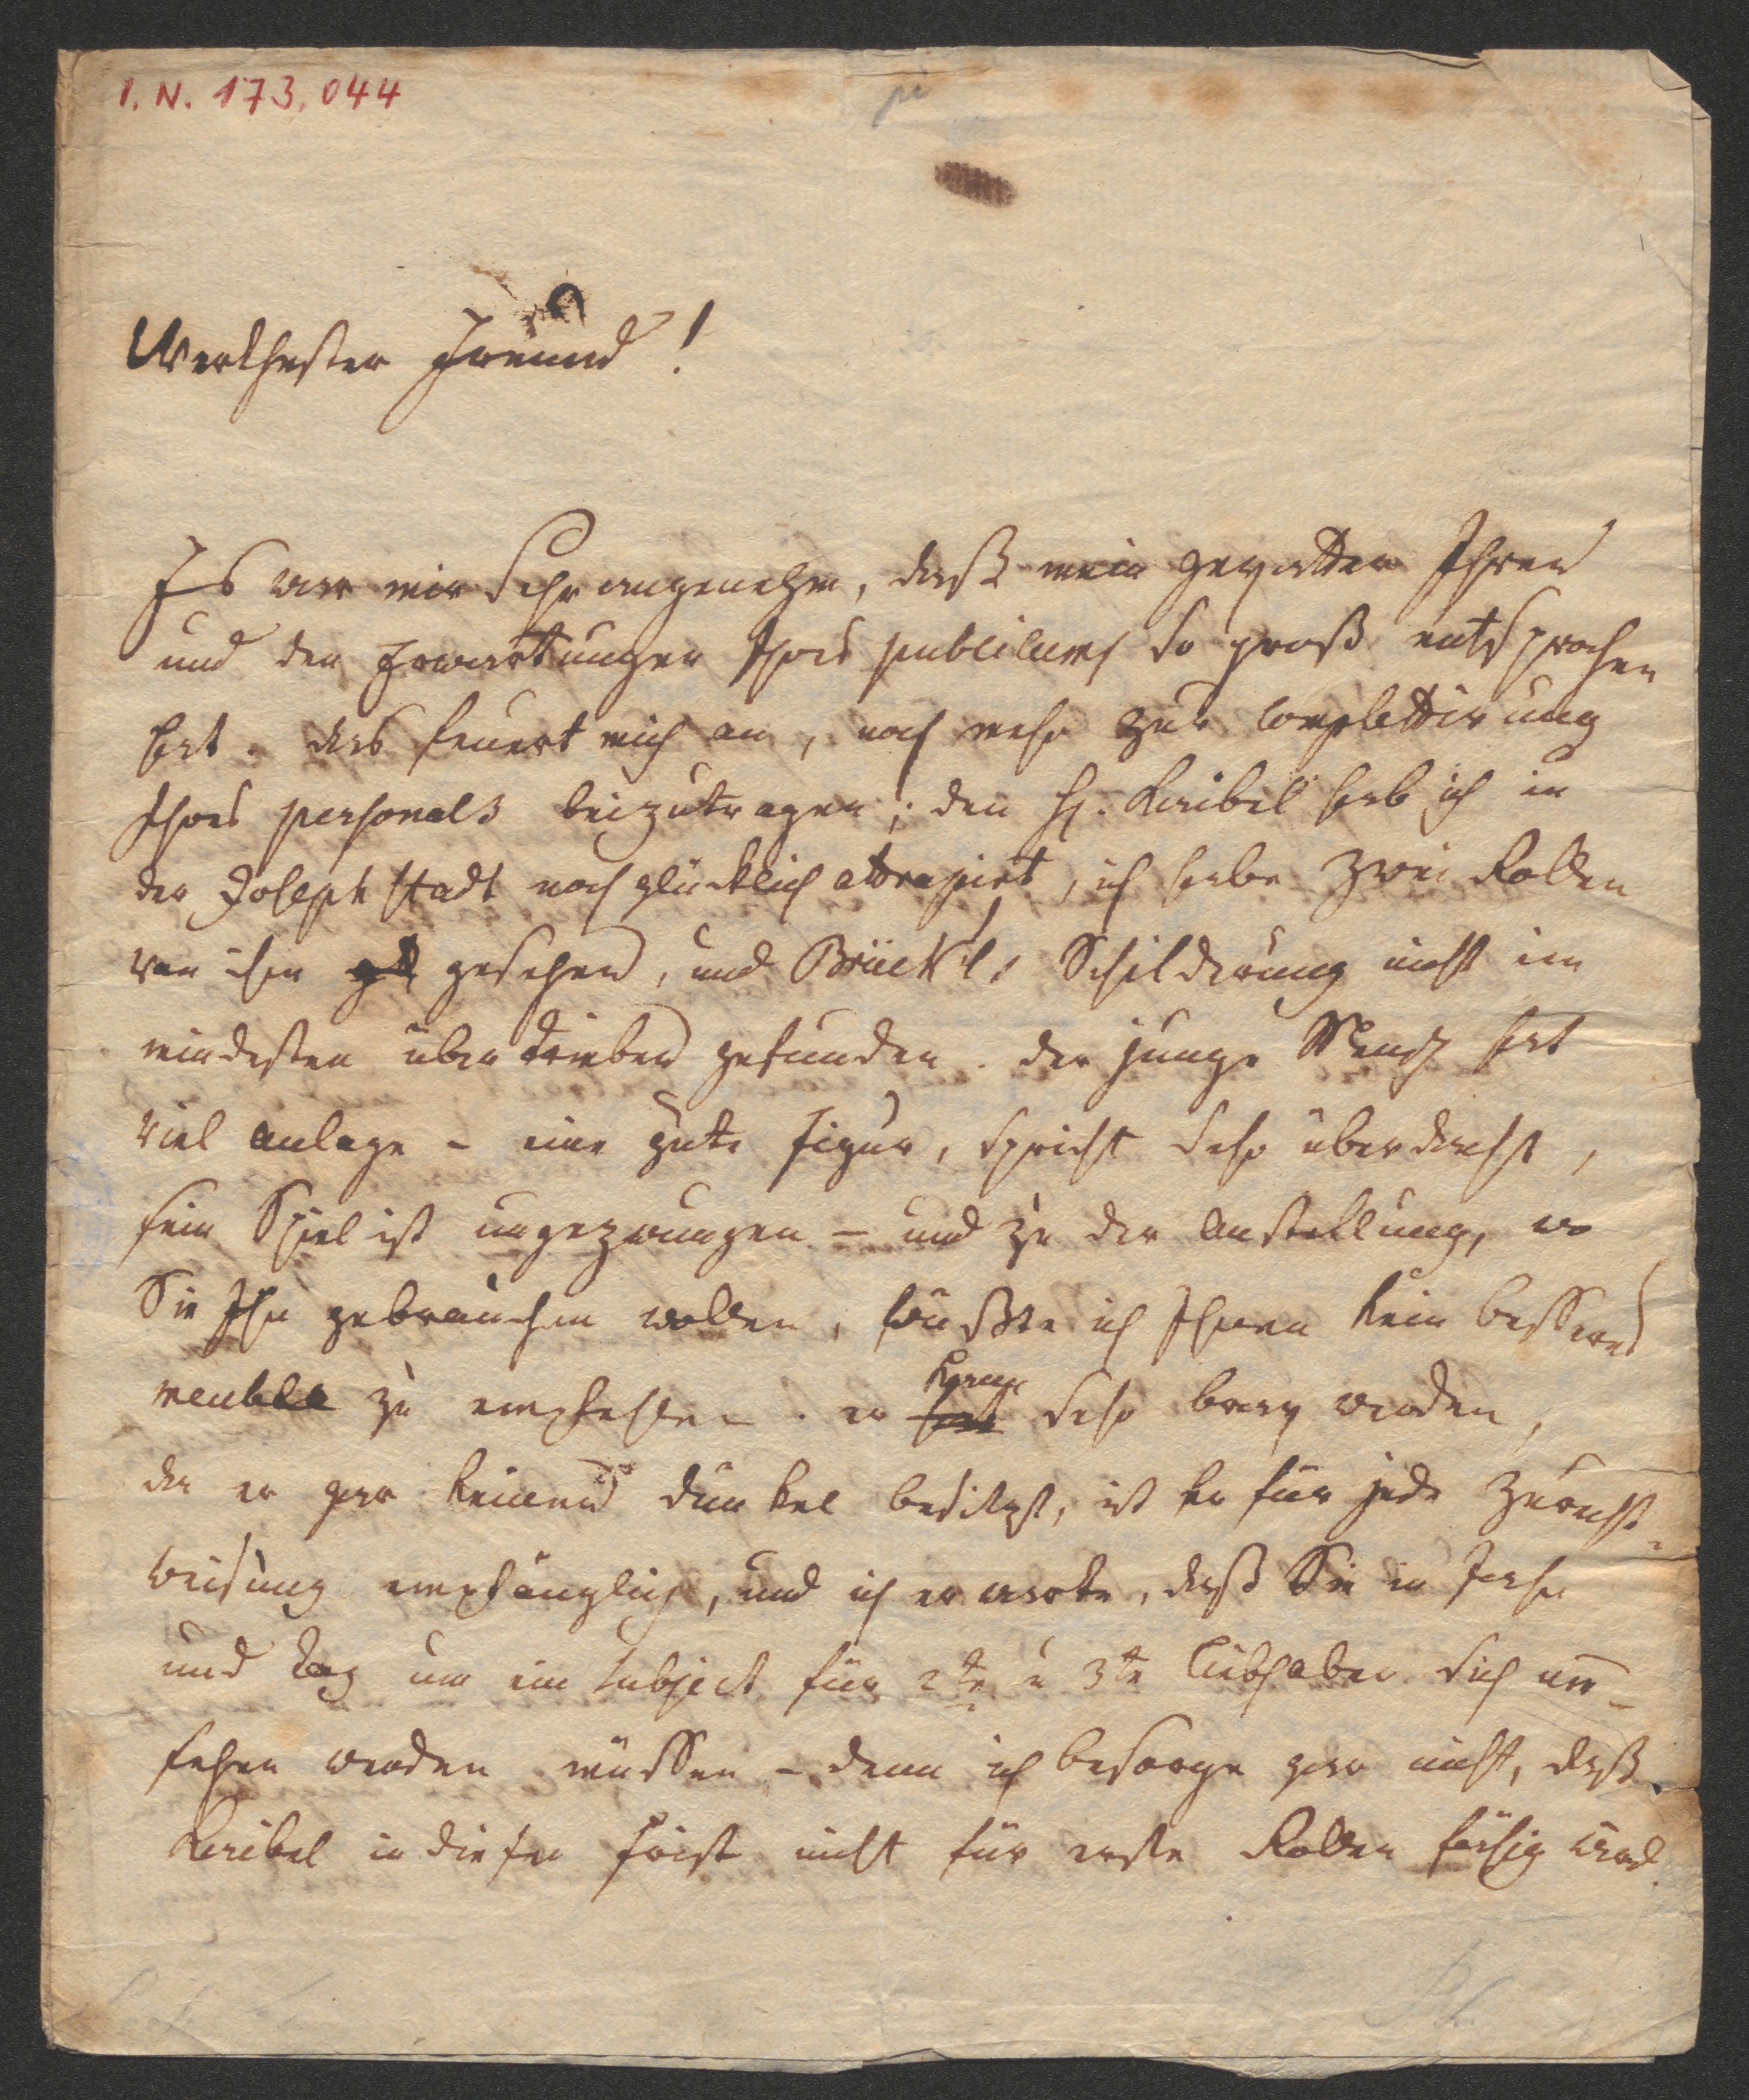 I. N. 173,044
Werthester Freund!
Es war mir Sehr angenehm, daß mein gevatter Ihren
und den Erwartungen Ihres publikums so groß entsprochen
hat. das feuert mich an, noch mehr zur Complettirung
Ihres personals beizutragen; den H. Kaibel hab ich in
der Joseph stadt noch glücklich attrapirt, ich habe zwei Rollen
von ihm gesehen, und Brückl's Schilderung nicht im
mindesten übertrieben gefunden. der junge Mensch hat
viel anlage – eine gute figur, spricht sehr überdacht,
sein Spiel ist ungezwungen – und zu der anstellung, wo
Sie Ihn gebrauchen wollen, wüßte ich Ihnen kein besseres
meuble zu empfehlen. er kann sehr brav werden,
da er gar keinen dünkel besitzt, ist er für jede Zurecht-
weisung empfänglich, und ich erwarte, daß Sie in Jahr
und tag um ein subject für 2te u 3te liebhaber sich um-
sehen werden müssen – denn ich besorge gar nicht, daß
Kaibel in dieser frist nicht für erste Rollen fähig wird.